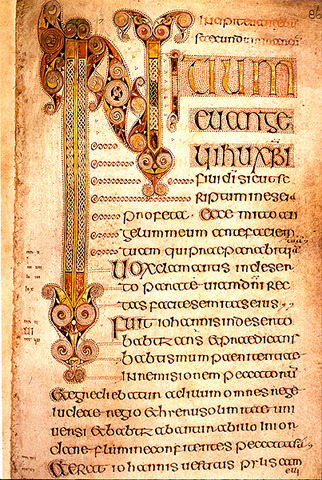 86
Incipit euange
secundum
INITIUM
euange
lii ihu xpi
filii di sicut es
criptum in esei
a profeta Ecce mitto an
gelum meum ante faciem
tuam qui praeparabit ui
am tuam
Uox clamantis in deser
to parate uiam dni rec
tas facite semitas eius
Fuit iohannis in deserto
babtizans et praedicans
babtismum paenitentiae
in remisionem peccatorum
Et egrediebatur ad illum omnes
et babtizabantur ab illo in ior
dane flumine confitentes peccata sua
Et erat iohannis uestitus pylis cam
eli